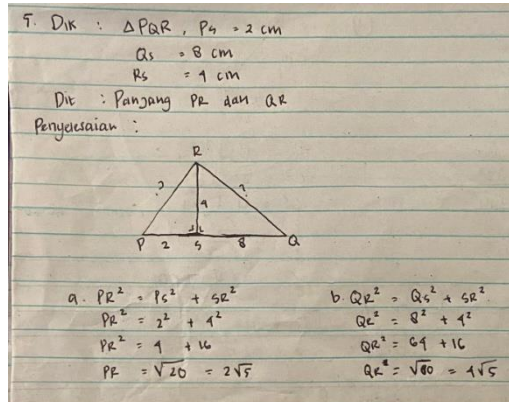 5. Dik : △PQR, PS = 2 cm
QS = 8 cm
RS = 4 cm
Dit : Panjang PR dan QR
Penyelesaian :
R
? ?
4
P 2 S 8 Q
a. PR² = PS² + SR²
PR² = 2² + 4²
PR² = 4 + 16
PR = √20 = 2√5
b. QR² = QS² + SR²
QR² = 8² + 4²
QR² = 64 + 16
QR² = √80 = 4√5